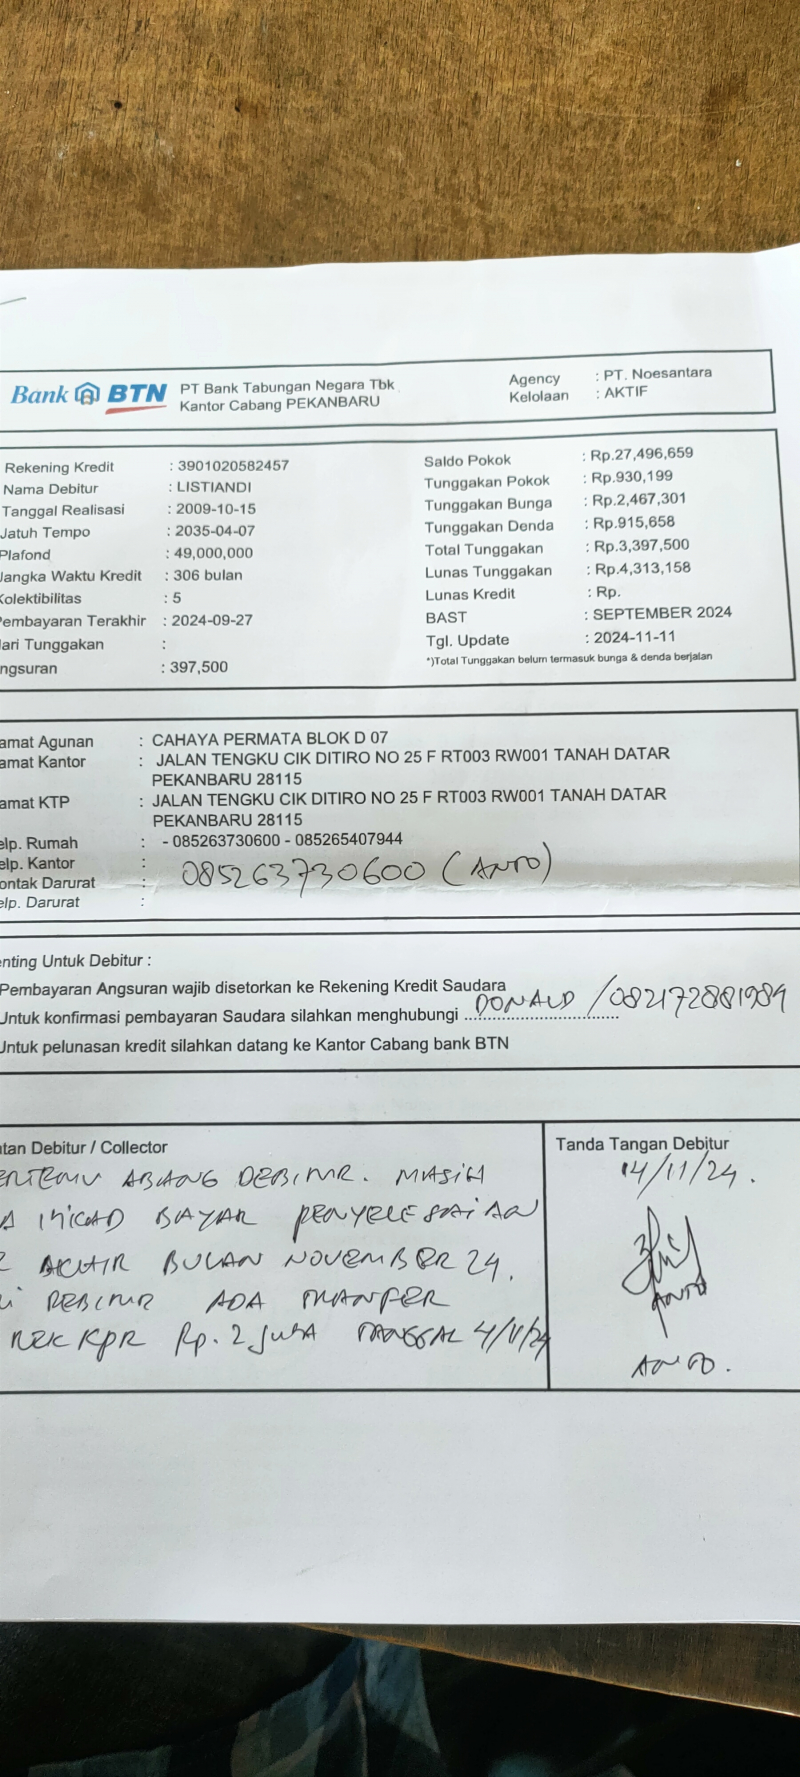 Bank BTN PT Bank Tabungan Negara Tbk
Kantor Cabang PEKANBARU
Agency : PT. Noesantara
Kelolaan : AKTIF
Rekening Kredit : 3901020582457
Nama Debitur : LISTIANDI
Tanggal Realisasi : 2009-10-15
Jatuh Tempo : 2035-04-07
Plafond : 49,000,000
Jangka Waktu Kredit : 306 bulan
Kolektibilitas : 5
Pembayaran Terakhir : 2024-09-27
ari Tunggakan :
ngsuran : 397,500
Saldo Pokok : Rp.27,496,659
Tunggakan Pokok : Rp.930,199
Tunggakan Bunga : Rp.2,467,301
Tunggakan Denda : Rp.915,658
Total Tunggakan : Rp.3,397,500
Lunas Tunggakan : Rp.4,313,158
Lunas Kredit : Rp.
BAST : SEPTEMBER 2024
Tgl. Update : 2024-11-11
*)Total Tunggakan belum termasuk bunga & denda berjalan
amat Agunan : CAHAYA PERMATA BLOK D 07
amat Kantor : JALAN TENGKU CIK DITIRO NO 25 F RT003 RW001 TANAH DATAR
PEKANBARU 28115
amat KTP : JALAN TENGKU CIK DITIRO NO 25 F RT003 RW001 TANAH DATAR
PEKANBARU 28115
elp. Rumah : - 085263730600 - 085265407944
elp. Kantor :
ontak Darurat : 085263730600 (ANTO)
elp. Darurat :
enting Untuk Debitur :
Pembayaran Angsuran wajib disetorkan ke Rekening Kredit Saudara
Untuk konfirmasi pembayaran Saudara silahkan menghubungi DONALD / 082172881984
Untuk pelunasan kredit silahkan datang ke Kantor Cabang bank BTN
tan Debitur / Collector
ERTEMU ABANG DEBITUR. MASIH
A ITIKAD BAYAR PENYELESAIAN
AKHIR BULAN NOVEMBER 24.
DEBITUR ADA TRANFER
REK KPR Rp. 2 JUTA TANGGAL 4/11/24
Tanda Tangan Debitur
14/11/24.
ANTO
ANTO.